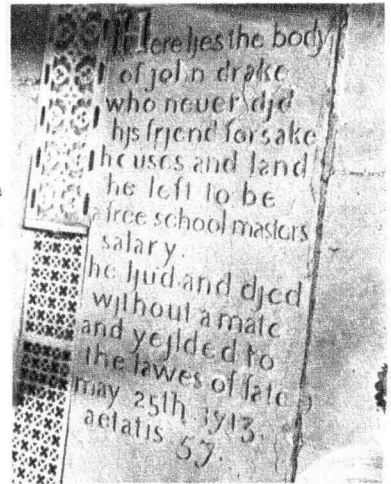 Here ljes the body
of john drake
who neuer djd
hjs frjend forsake
houses and land
he left to be
a free school masters
salary.
he ljud and djed
wjthout a mate
and yejlded to
the lawes of fate
may 25th 1713.
aetatis 57.